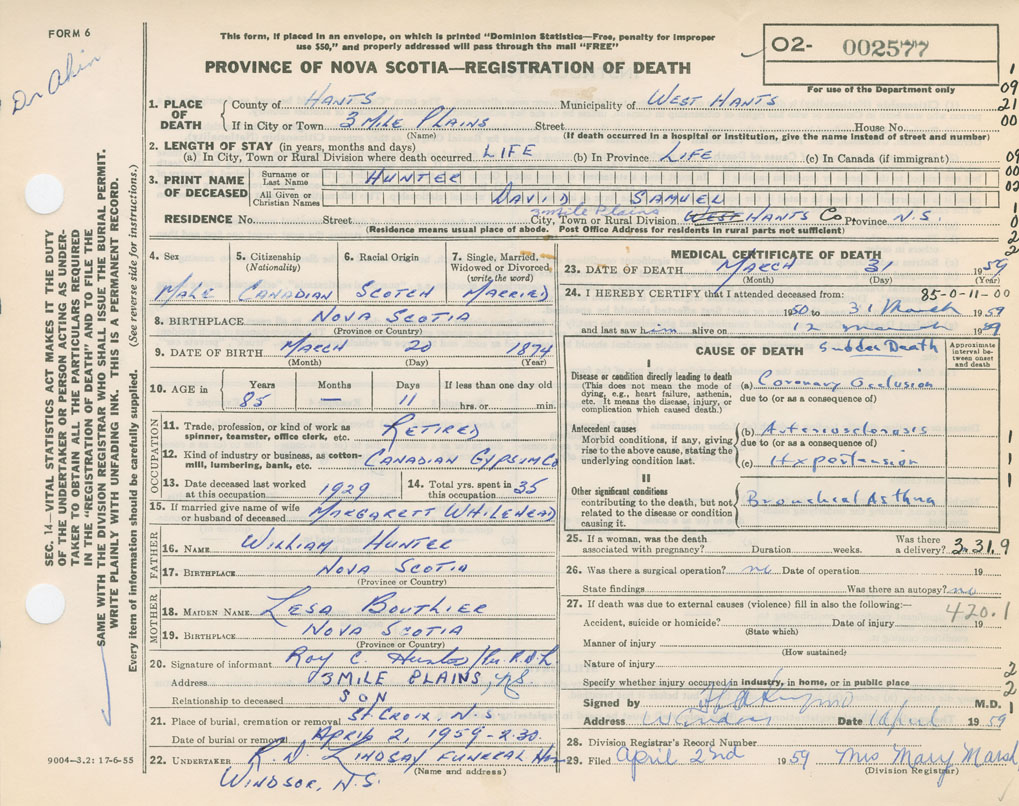 FORM 6
Dr Akin
This form, if placed in an envelope, on which is printed "Dominion Statistics—Free, penalty for improper
use $50," and properly addressed will pass through the mail "FREE"
PROVINCE OF NOVA SCOTIA—REGISTRATION OF DEATH
O2- 002577
For use of the Department only
1. PLACE OF DEATH County of HANTS Municipality of WEST HANTS
If in City or Town 3 MILE PLAINS Street House No.
(Name) (If death occurred in a hospital or institution, give the name instead of street and number)
2. LENGTH OF STAY (in years, months and days)
(a) In City, Town or Rural Division where death occurred LIFE (b) In Province LIFE (c) In Canada (if immigrant)
3. PRINT NAME OF DECEASED Surname or Last Name HUNTER
All Given or Christian Names DAVID SAMUEL
3 Mile Plains
RESIDENCE No. Street City, Town or Rural Division WEST HANTS Co Province N.S.
(Residence means usual place of abode. Post Office Address for residents in rural parts not sufficient)
4. Sex 5. Citizenship (Nationality) 6. Racial Origin 7. Single, Married, Widowed or Divorced, (write the word)
MALE CANADIAN SCOTCH MARRIED
8. BIRTHPLACE NOVA SCOTIA
(Province or Country)
9. DATE OF BIRTH MARCH 20 1874
(Month) (Day) (Year)
10. AGE in Years Months Days If less than one day old
85 — 11 hrs. or min.
OCCUPATION
11. Trade, profession, or kind of work as
spinner, teamster, office clerk, etc. RETIRED
12. Kind of industry or business, as cotton-
mill, lumbering, bank, etc. CANADIAN GYPSIM Co
13. Date deceased last worked at this occupation 1929 14. Total yrs. spent in this occupation 35
15. If married give name of wife
or husband of deceased MARGARETT WHILEHEAD
FATHER
16. NAME WILLIAM HUNTER
17. BIRTHPLACE NOVA SCOTIA
(Province or Country)
MOTHER
18. MAIDEN NAME LESA BOUTHIER
19. BIRTHPLACE NOVA SCOTIA
(Province or Country)
20. Signature of informant Roy C. Hunter / Per R.D.L.
Address 3 MILE PLAINS, NS
Relationship to deceased SON
21. Place of burial, cremation or removal ST. CROIX, N.S
Date of burial or removal April 2, 1959 - 2.30
22. UNDERTAKER R. N LINDSAY FUNERAL
(Name and address)
WINDSOR, N.S.
9004-3.2: 17-6-55
MEDICAL CERTIFICATE OF DEATH
23. DATE OF DEATH MARCH 31 1959
(Month) (Day) (Year)
24. I HEREBY CERTIFY that I attended deceased from: 85-0-11-00
1950 to 31 March 1959
and last saw him alive on 12 march 1959
CAUSE OF DEATH Sudden Death
Approximate interval between onset and death
I
Disease or condition directly leading to death
(This does not mean the mode of
dying, e.g., heart failure, asthenia,
etc. It means the disease, injury, or
complication which caused death.)
(a) Coronary Occlusion
due to (or as a consequence of)
Antecedent causes
Morbid conditions, if any, giving
rise to the above cause, stating the
underlying condition last.
(b) Arteriosclerosis
due to (or as a consequence of)
(c) Hypertension
II
Other significant conditions
contributing to the death, but not
related to the disease or condition
causing it.
Bronchial Asthma
25. If a woman, was the death
associated with pregnancy? Duration weeks. Was there a delivery? 3.31.9
26. Was there a surgical operation? no Date of operation 19
State findings Was there an autopsy? no
27. If death was due to external causes (violence) fill in also the following:—
420.1
Accident, suicide or homicide? Date of injury 19
(State which)
Manner of injury
(How sustained)
Nature of injury
Specify whether injury occurred in industry, in home, or in public place
Signed by M.D.
Address Windsor Date 1 April 1959
28. Division Registrar's Record Number
29. Filed April 2nd 1959 Mrs Mary Marsh
(Division Registrar)
SEC. 14—VITAL STATISTICS ACT MAKES IT THE DUTY
OF THE UNDERTAKER OR PERSON ACTING AS UNDER-
TAKER TO OBTAIN ALL THE PARTICULARS REQUIRED
IN THE "REGISTRATION OF DEATH" AND TO FILE THE
SAME WITH THE DIVISION REGISTRAR WHO SHALL ISSUE THE BURIAL PERMIT.
WRITE PLAINLY WITH UNFADING INK. THIS IS A PERMANENT RECORD.
Every item of information should be carefully supplied. (See reverse side for instructions.)
1
09
21
00
09
00
02
1
0
2
2
1
1
1
2
2
1